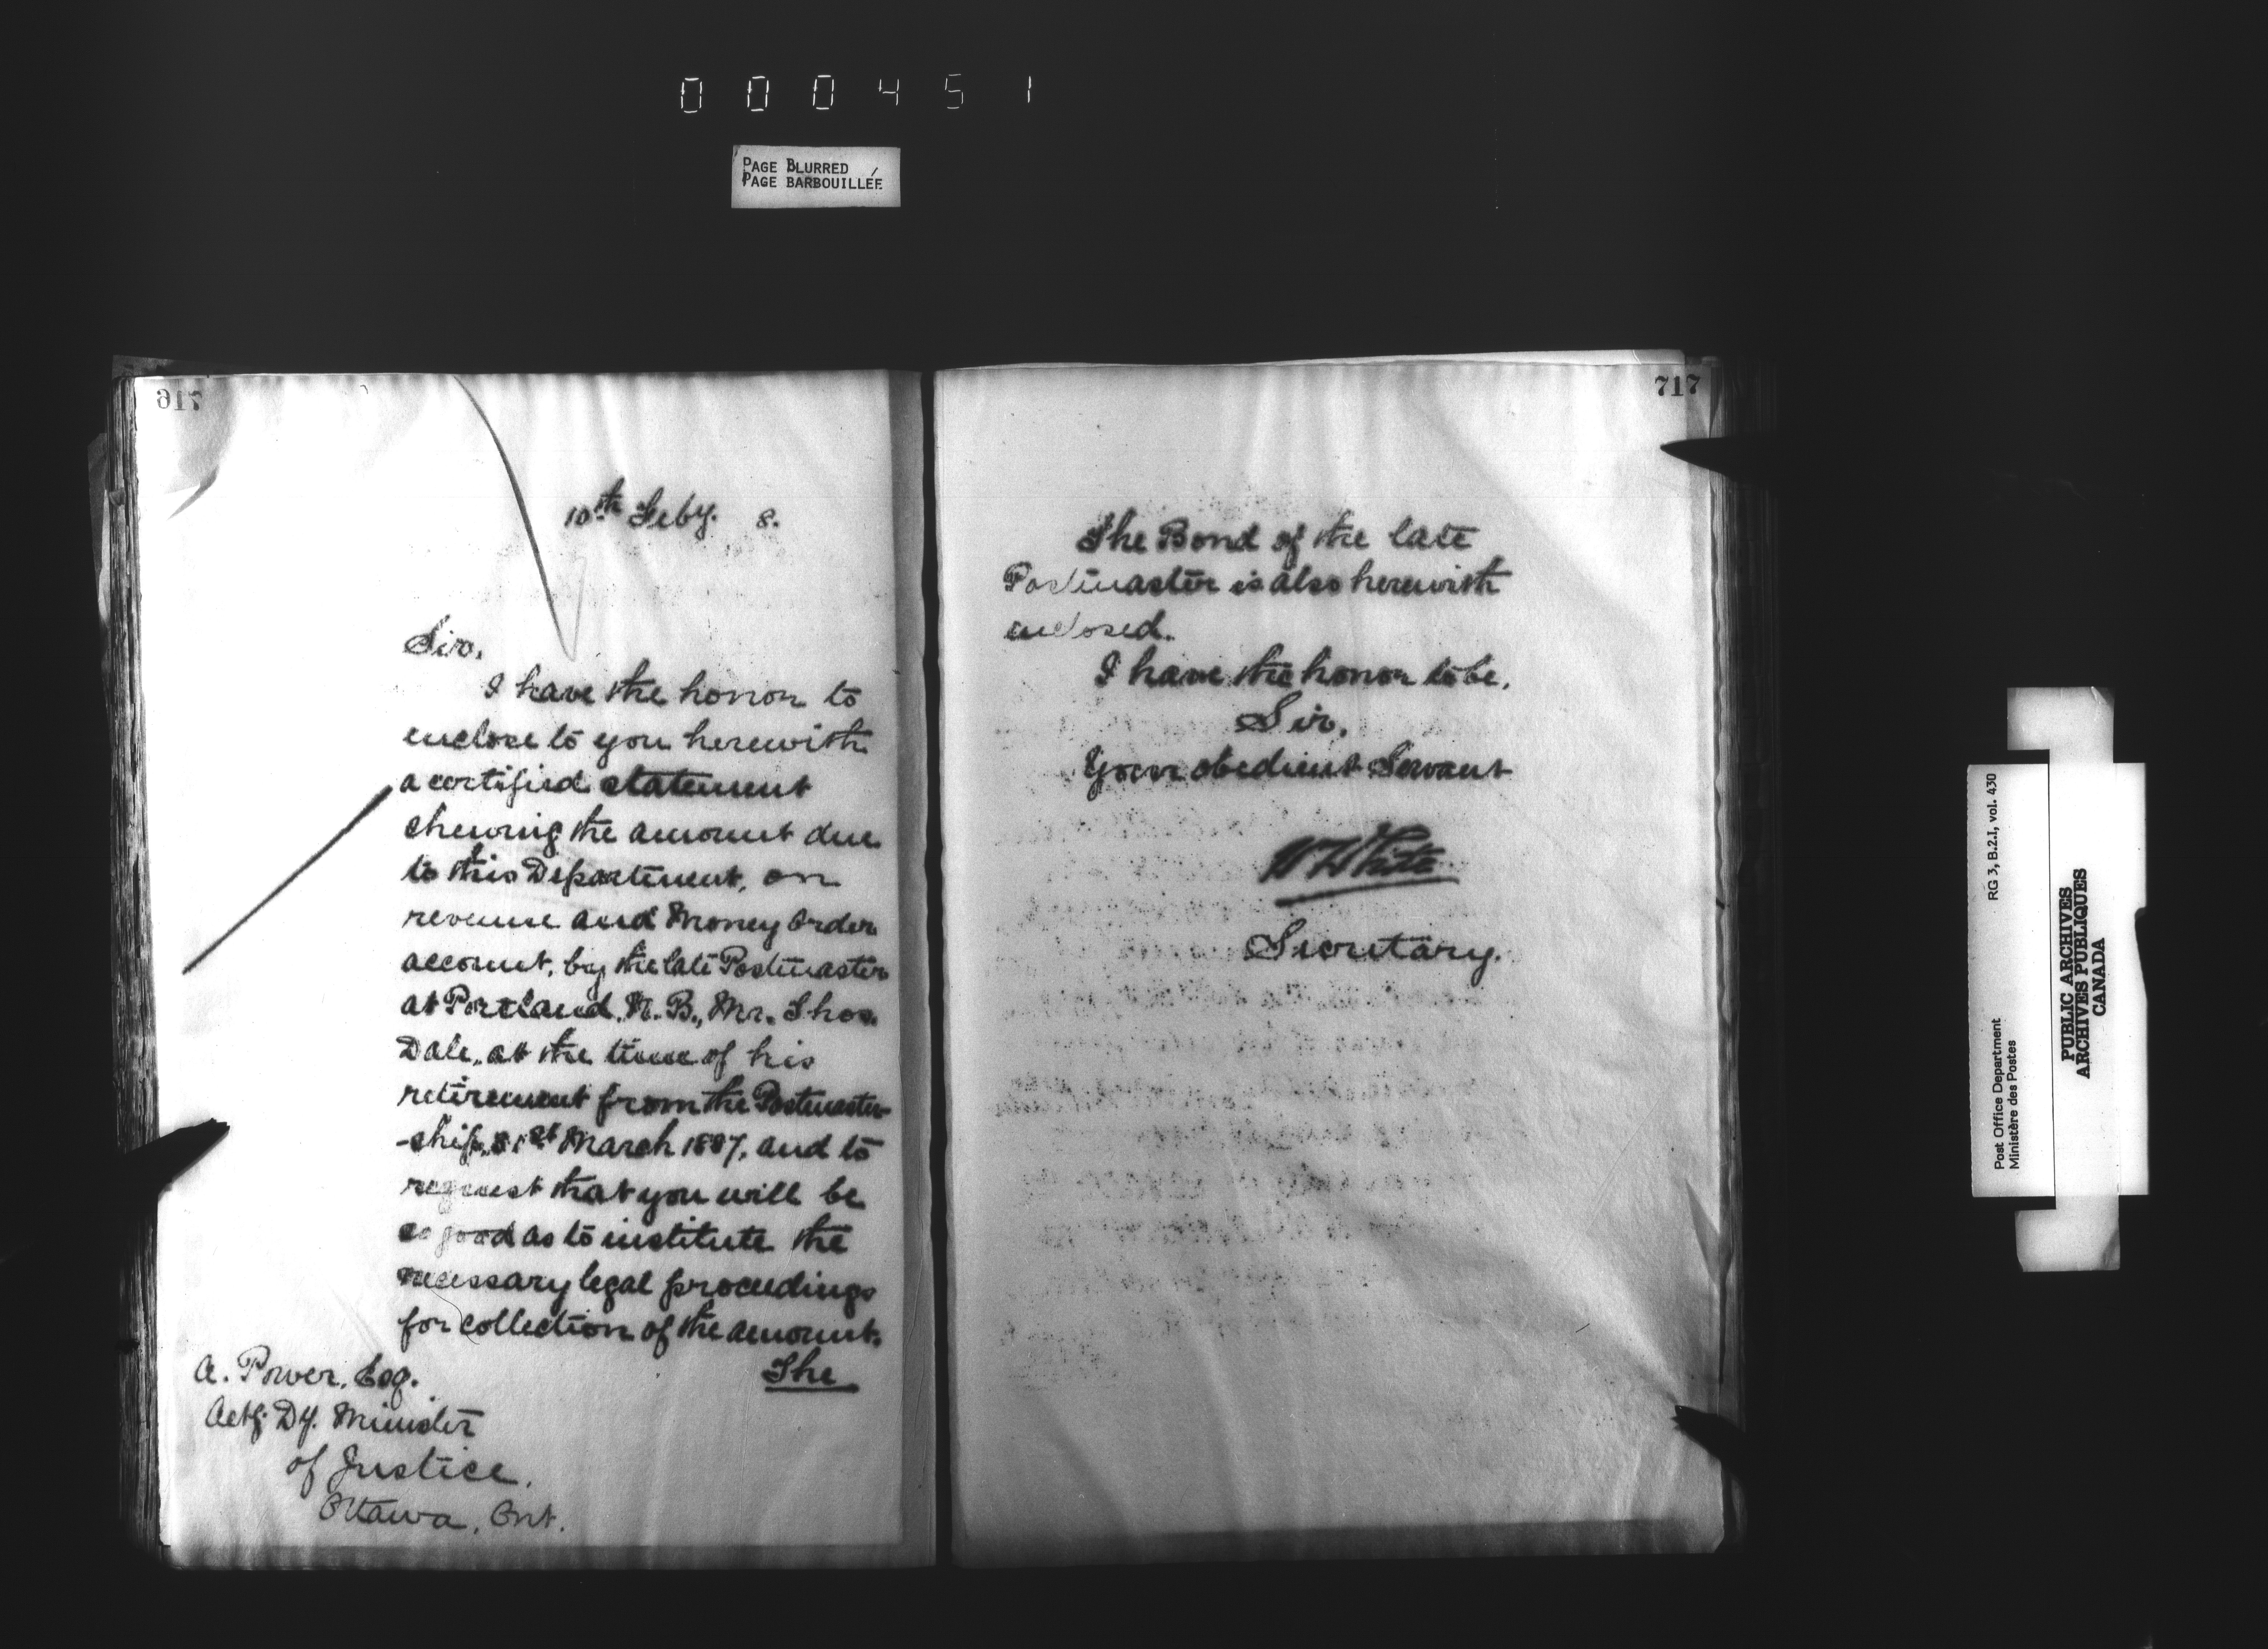 000451
PAGE BLURRED
PAGE BARBOUILLÉE
10th Feby. 8.
Sir,
I have the honor to
enclose to you herewith
a certified statement
shewing the amount due
to this Department, on
revenue and Money Order
account, by the late Postmaster
at Portland, N. B., Mr. Thos.
Dale, at the time of his
retirement from the Postmaster
-ship, 31st March 1887, and to
request that you will be
so good as to institute the
necessary legal proceedings
for collection of the amount.
The
A. Power, Esq.
Actg. Dy. Minister
of Justice,
Ottawa, Ont.
717
The Bond of the late
Postmaster is also herewith
enclosed.
I have the honor to be,
Sir,
Your obedient Servant
W White
Secretary.
Post Office Department
Ministère des Postes
RG 3, B.2.I, vol. 430
PUBLIC ARCHIVES
ARCHIVES PUBLIQUES
CANADA